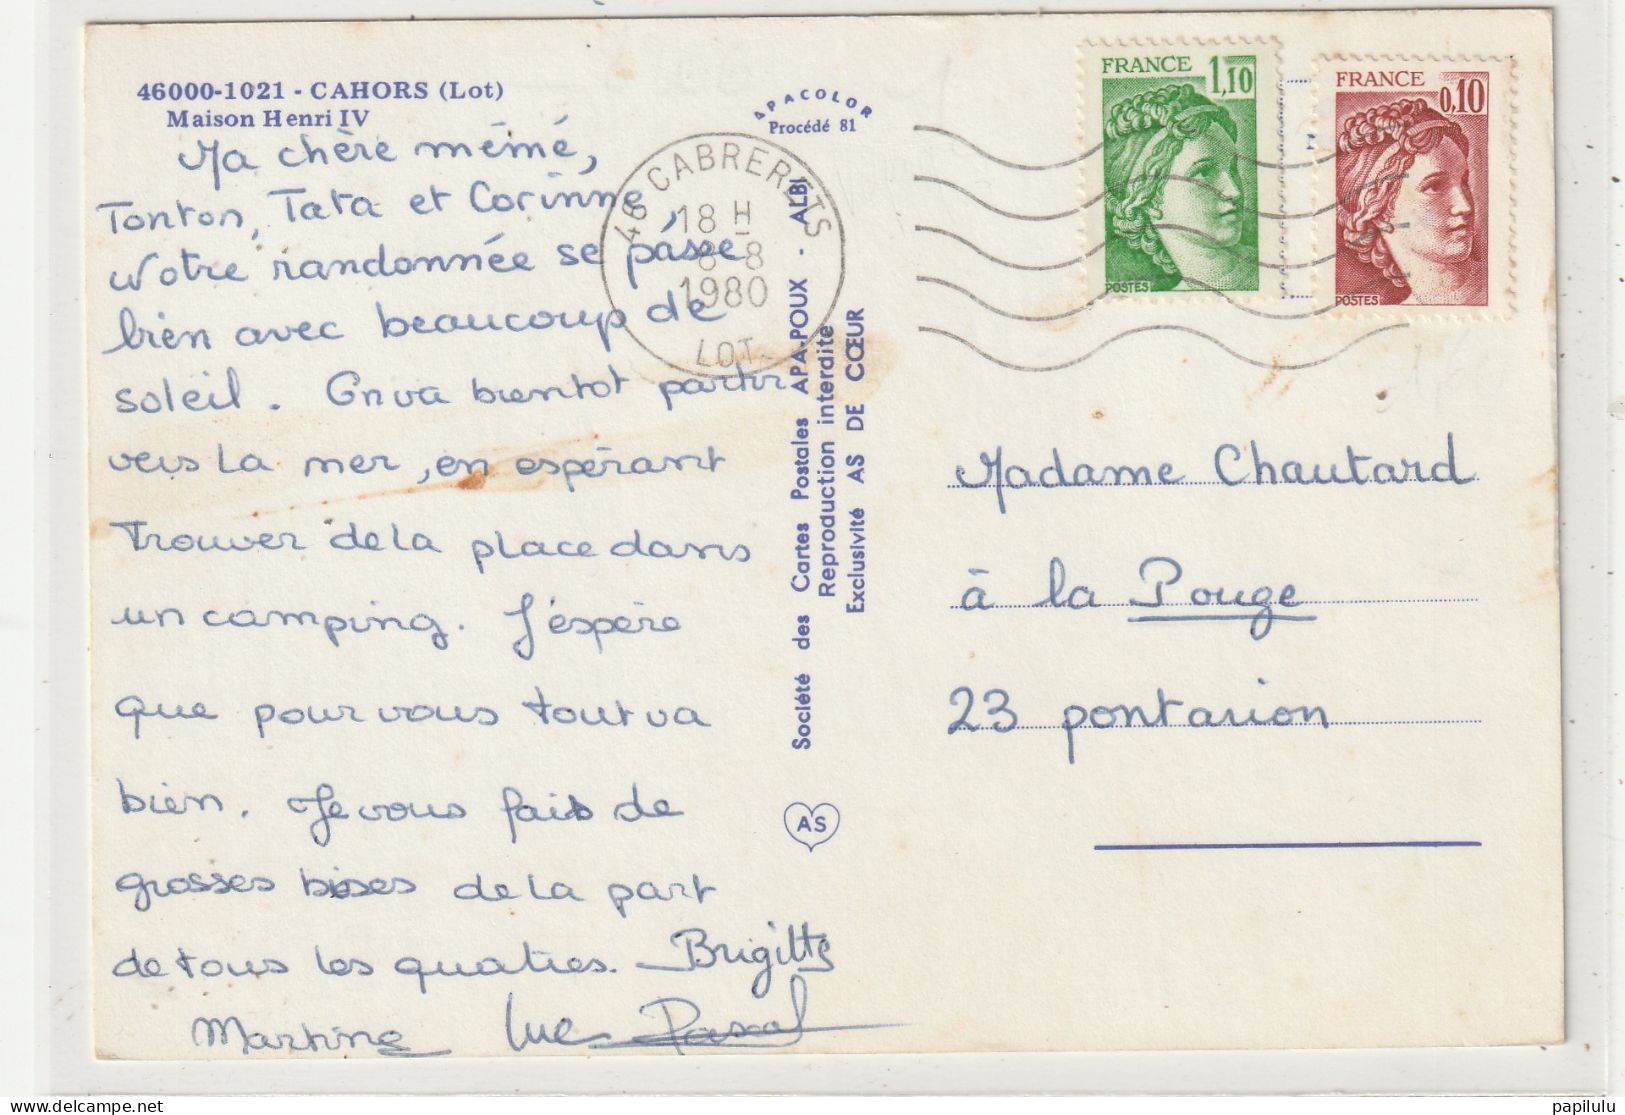 46000-1021 - CAHORS (Lot)
Maison Henri IV
APACOLOR
Procédé 81
Ma chère mémé,
Tonton, Tata et Corinne,
Notre randonnée se passe
bien avec beaucoup de
soleil. On va bientot partir
vers la mer, en espérant
trouver de la place dans
un camping. J'éspère
que pour vous tout va
bien. Je vous fais de
grosses bises de la part
de tous les quatres. Brigitte
Martine Luc Pascal
46 CABRERETS
18 H
8-8
1980
LOT
Société des Cartes Postales APA-POUX - ALBI
Reproduction interdite
Exclusivité AS DE CŒUR
AS
FRANCE 1,10
POSTES
FRANCE
0,10
POSTES
Madame Chautard
à la Pouge
23 pontarion
papilulu